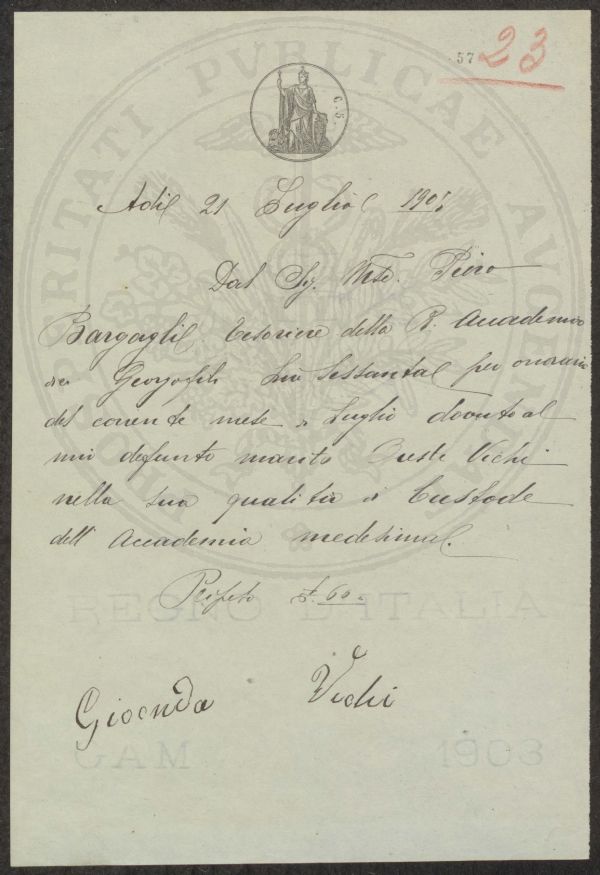 57 23
C. 5.
PROSPERITATI PVBLICAE AVGENDAE
Adi 21 Luglio
Dal Sig. Mse. Piero
Bargagli Tesoriere della R. Accademia
dei Georgofili Lire Sessanta per onorario
del corrente mese di Luglio dovuto al
mio defunto marito Oreste Vichi
nella sua qualità di Custode
dell' Accademia medesima.
Ripeto £. 60.
REGNO D'ITALIA
Gioconda Vichi
GAM 1903